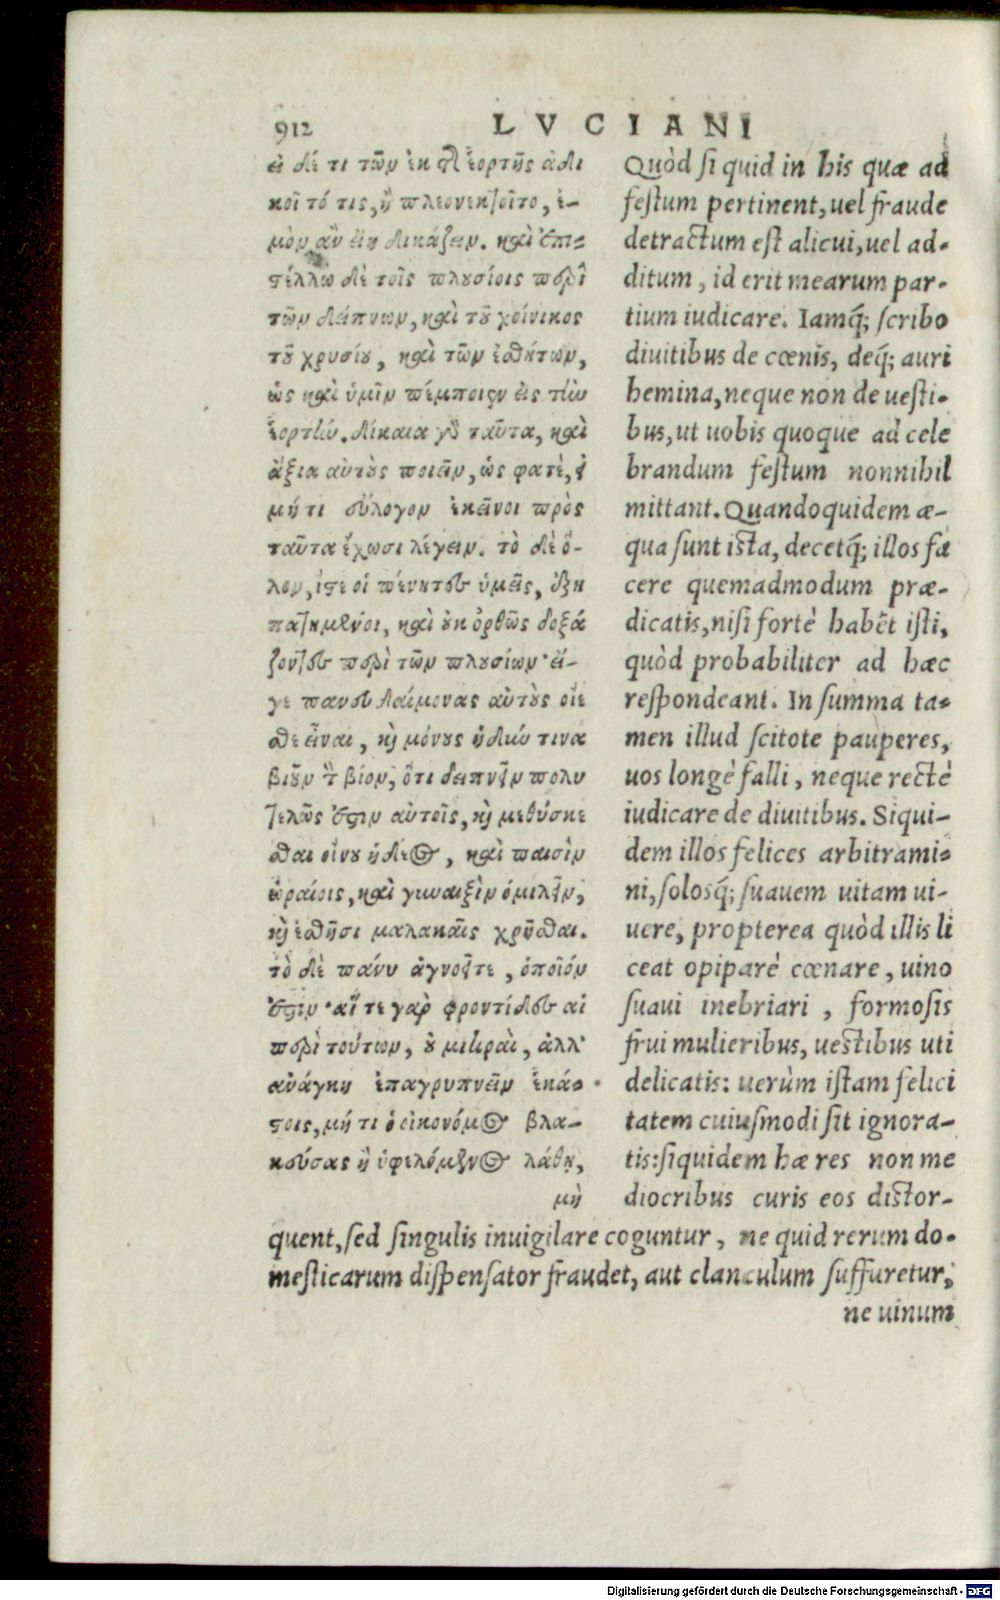 912 LVCIANI
εἰ δέ τι τῶν ἐκ τῆς ἑορτῆς ἀδι
κοῖτό τις, ἢ πλεονεκτοῖτο, ἐ-
μὸν ἂν εἴη δικάζειν. καὶ ἐπι-
στέλλω δὲ τοῖς πλουσίοις περὶ
τῶν δείπνων, καὶ τοῦ χοίνικος
τοῦ χρυσίου, καὶ τῶν ἐσθήτων,
ὡς καὶ ὑμῖν πέμποιεν εἰς τὴν
ἑορτήν. δίκαια γὰρ ταῦτα, καὶ
ἄξια αὐτοὺς ποιεῖν, ὡς φατὲ, εἰ
μή τι εὔλογον ἐκεῖνοι πρὸς
ταῦτα ἔχωσι λέγειν. τὸ δὲ ὅ-
λον, ἴστε οἱ πένητες ὑμεῖς, ἐξη
πατημένοι, καὶ οὐκ ὀρθῶς δοξά
ζοντες περὶ τῶν πλουσίων· εἴ-
γε πανευδαίμονας αὐτοὺς οἴε
σθε εἶναι, καὶ μόνους ἡδύν τινα
βιοῦν τὸν βίον, ὅτι δειπνεῖν πολυ
τελῶς ἔστιν αὐτοῖς, καὶ μεθύσκε
σθαι οἴνου ἡδέος, καὶ παισὶν
ὡραίοις, καὶ γυναιξὶν ὁμιλεῖν,
καὶ ἐσθῆσι μαλακαῖς χρῆσθαι.
τὸ δὲ πάνυ ἀγνοεῖτε, ὁποῖόν
ἐστιν· αἵ τε γὰρ φροντίδες αἱ
περὶ τούτων, οὐ μικραὶ, ἀλλ'
ἀνάγκη ἐπαγρυπνεῖν ἑκά-
στοις, μή τι ὁ οἰκονόμος βλα-
κεύσας ἢ ὑφελόμενος λάθῃ,
μὴ
Quòd si quid in his quæ ad
festum pertinent, uel fraude
detractum est alicui, uel ad-
ditum, id erit mearum par-
tium iudicare. Iamq́; scribo
diuitibus de cœnis, deq́; auri
hemina, neque non de uesti-
bus, ut uobis quoque ad cele
brandum festum nonnihil
mittant. Quandoquidem æ-
qua sunt ista, decetq́; illos fa
cere quemadmodum præ-
dicatis, nisi fortè habẽt isti,
quòd probabiliter ad hæc
respondeant. In summa ta-
men illud scitote pauperes,
uos longè falli, neque rectè
iudicare de diuitibus. Siqui-
dem illos felices arbitrami-
ni, solosq́; suauem uitam ui-
uere, propterea quòd illis li
ceat opiparè cœnare, uino
suaui inebriari, formosis
frui mulieribus, uestibus uti
delicatis: uerùm istam felici
tatem cuiusmodi sit ignora-
tis: siquidem hæ res non me
diocribus curis eos distor-
quent, sed singulis inuigilare coguntur, ne quid rerum do-
mesticarum dispensator fraudet, aut clanculum suffuretur,
ne uinum
Digitalisierung gefördert durch die Deutsche Forschungsgemeinschaft - DFG